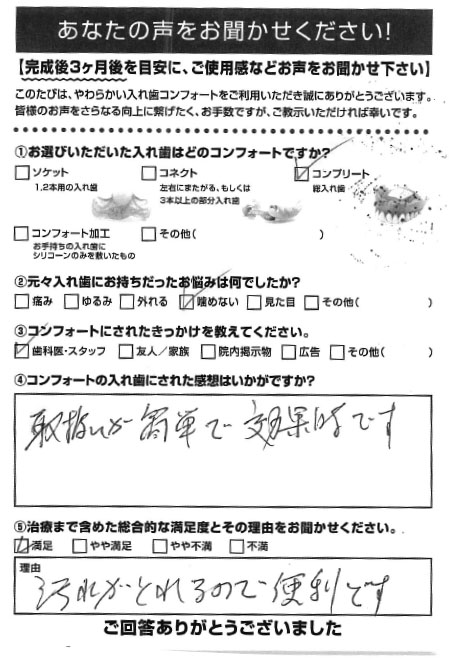 あなたの声をお聞かせください!
【完成後3ヶ月後を目安に、ご使用感などお声をお聞かせ下さい】
このたびは、やわらかい入れ歯コンフォートをご利用いただき誠にありがとうございます。
皆様のお声をさらなる向上に繋げたく、お手数ですが、ご教示いただければ幸いです。
①お選びいただいた入れ歯はどのコンフォートですか?
□ソケット □コネクト ☑コンプリート
1,2本用の入れ歯 左右にまたがる、もしくは 総入れ歯
3本以上の部分入れ歯
□コンフォート加工 □その他( )
お手持ちの入れ歯に
シリコーンのみを敷いたもの
②元々入れ歯にお持ちだったお悩みは何でしたか?
□痛み □ゆるみ □外れる ☑噛めない □見た目 □その他( )
③コンフォートにされたきっかけを教えてください。
☑歯科医・スタッフ □友人/家族 □院内掲示物 □広告 □その他( )
④コンフォートの入れ歯にされた感想はいかがですか?
取扱いが簡単で効果的です
⑤治療まで含めた総合的な満足度とその理由をお聞かせください。
☑満足 □やや満足 □やや不満 □不満
理由
汚れがとれるので便利です
ご回答ありがとうございました